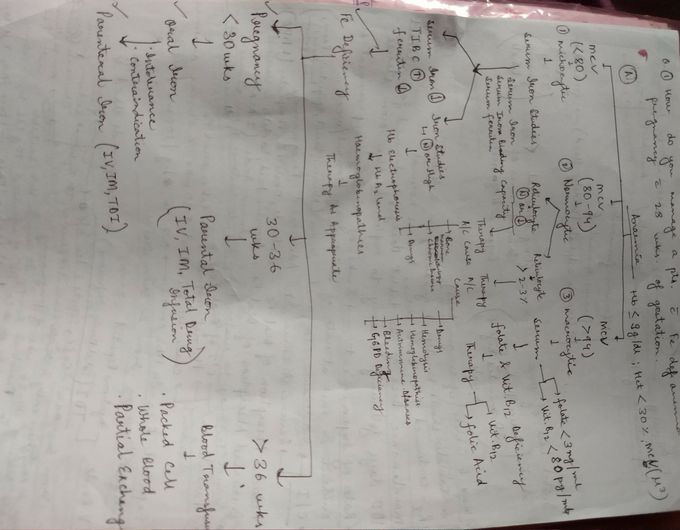 Q① How do you manage a pt. c̄ Fe def anaemia
pregnancy c̄ 28 wks of gestation.
Ⓐ
Anaemia Hb ≤ 9g/dl ; Hct < 30%, mcv (µ³)
mcv (<80)
mcv (80-94)
mcv (>94)
① microcytic
② Normocytic
③ macrocytic
Serum Iron Studies
Reticulocyte
Reticulocyte > 2-3%
Serum
folate < 3mg/ml
Vit. B12 < 80 pg/mb
Serum Iron
Serum Iron Binding capacity
Serum ferritin
Therapy A/C Cause
Therapy A/C Cause
folate & Vit. B12 Deficiency
Therapy
Vit. B12
folic Acid
Serum Iron ↓
TIBC ↑
ferritin ↓
Iron Studies
Ⓝ or High
Hb Electrophoresis
Hb A2 Band
Haemoglobinopathies
Therapy As Appropriate
Drugs
Drugs
Hemolysis
Hemoglobinopathies
Autoimmune diseases
Bleeding
G6PD Deficiency
Fe Deficiency
Pregnancy
< 30 wks
30-36 wks
> 36 wks
✓ Oral Iron
Parental Iron
(IV, IM, Total Drug Infusion)
Blood Transfus
. Intolerance
. contraindication
✓ Parenteral Iron (IV, IM, TDI)
. Packed Cell
. Whole Blood
. Partial Exchang